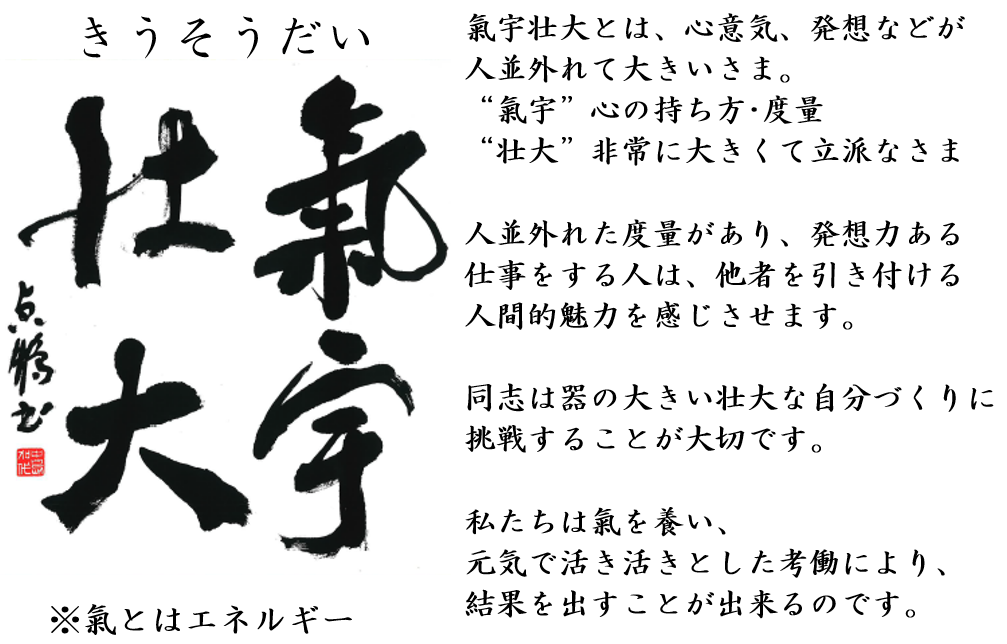 きうそうだい
氣宇
壮大
点鵬書
※氣とはエネルギー
氣宇壮大とは、心意気、発想などが
人並外れて大きいさま。
“氣宇”心の持ち方・度量
“壮大”非常に大きくて立派なさま
人並外れた度量があり、発想力ある
仕事をする人は、他者を引き付ける
人間的魅力を感じさせます。
同志は器の大きい壮大な自分づくりに
挑戦することが大切です。
私たちは氣を養い、
元気で活き活きとした考働により、
結果を出すことが出来るのです。